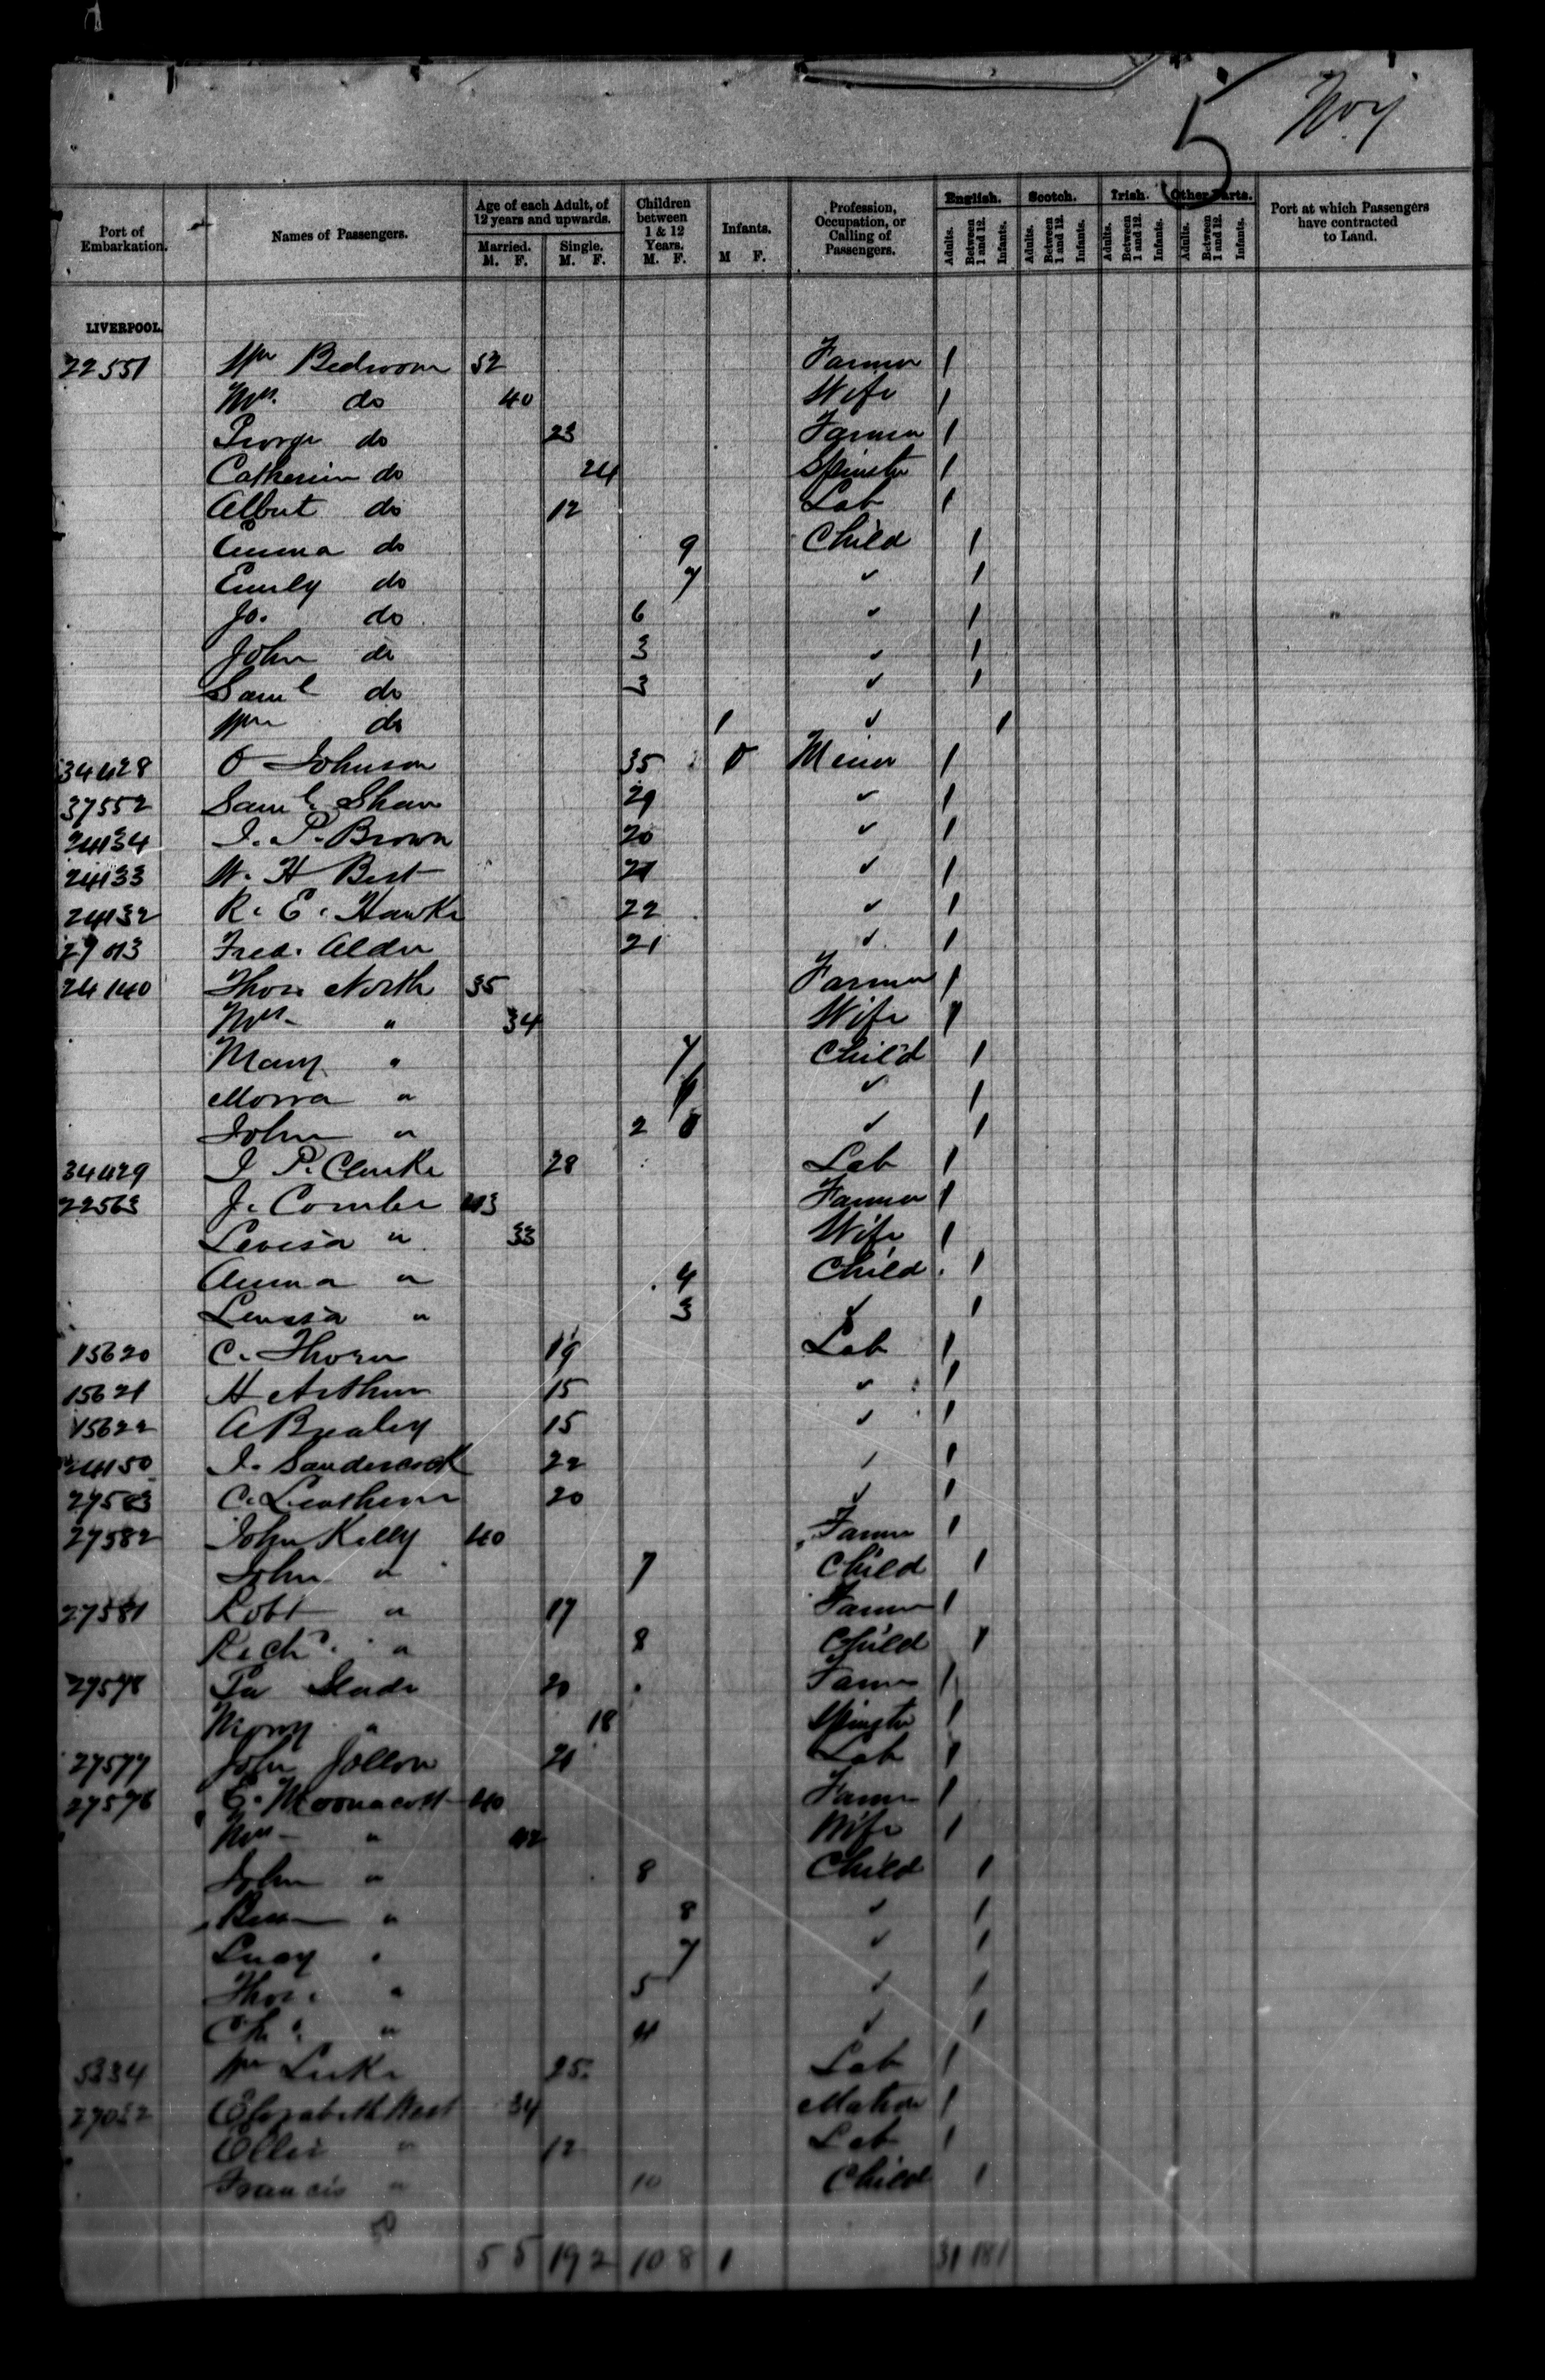 5 No 7
Port of Embarkation. Names of Passengers. Age of each Adult, of 12 years and upwards. Married. M. F. Single. M. F. Children between 1 & 12 Years. M. F. Infants. M F. Profession, Occupation, or Calling of Passengers. English. Adults. Between 1 and 12. Infants. Scotch. Adults. Between 1 and 12. Infants. Irish. Adults. Between 1 and 12. Infants. Other Parts. Adults. Between 1 and 12. Infants. Port at which Passengers have contracted to Land.
LIVERPOOL.
22551 Wm Bedroom 52 Farmer 1
Mrs. do 40 Wife 1
George do 23 Farmer 1
Catherine do 24 Spinster 1
Albert do 12 Lab 1
Emma do 9 Child 1
Emily do 7 ✓ 1
Jo. do 6 ✓ 1
John do 3 ✓ 1
Saml do 3 ✓ 1
Wm do 1 ✓ 1
34428 O Johnson 35 Miner 1
37552 Saml. Shaw 29 ✓ 1
24134 J. P. Brown 20 ✓ 1
24133 W. H Best 21 ✓ 1
24132 R. E. Hawke 22 ✓ 1
Fred. Alder 21 ✓ 1
24140 Thos North 35 Farmer 1
Mrs " 34 Wife 1
Mary " 7 Child 1
" ✓ 1
John " 2 ✓ 1
34429 J P. Clarke 28 Lab 1
22563 J. Combe 43 Farmer 1
Levisa " 33 Wife 1
" 4 Child 1
" 3 ✓ 1
15620 C. Thorn 19 Lab 1
15621 H Arthur 15 ✓ 1
15622 A Brealey 15 ✓ 1
24150 J. Sandercock 22 ✓ 1
27583 C. 20 ✓ 1
27582 John Kelly 40 Farmer 1
John " 7 Child 1
27581 Robt " 17 Farmer 1
Richd. " 8 Child 1
27578 Slade 20 Farmer 1
Mary " 18 Spinster 1
27577 John 21 Lab 1
27576 E. Moonacott 40 Farmer 1
Mrs " 42 Wife 1
John " 8 Child 1
" 8 ✓ 1
Lucy " 7 ✓ 1
Thos. " 5 ✓ 1
" 4 ✓ 1
5334 Wm Luke 25 Lab 1
Elizabeth West 34 Matron 1
" 12 Lab 1
Francis " 10 Child 1
50
5 5 19 2 10 8 1 31 18 1